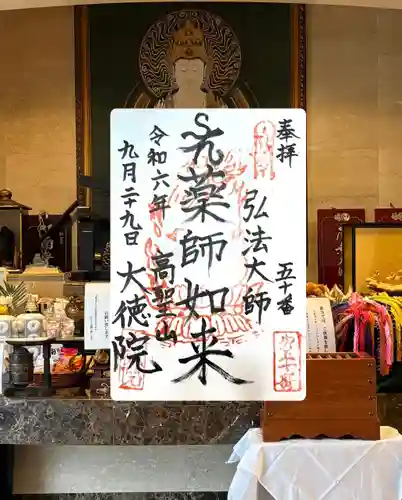 奉拝
五十番
弘法大師
薬師如来
高聖山
大徳院
令和六年
九月二十九日